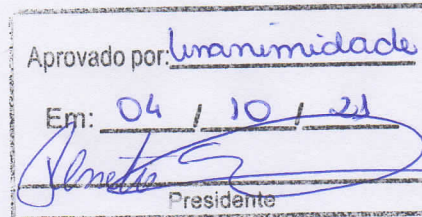 Aprovado por: Unanimidade
Em: 04 / 10 / 21
Presidente